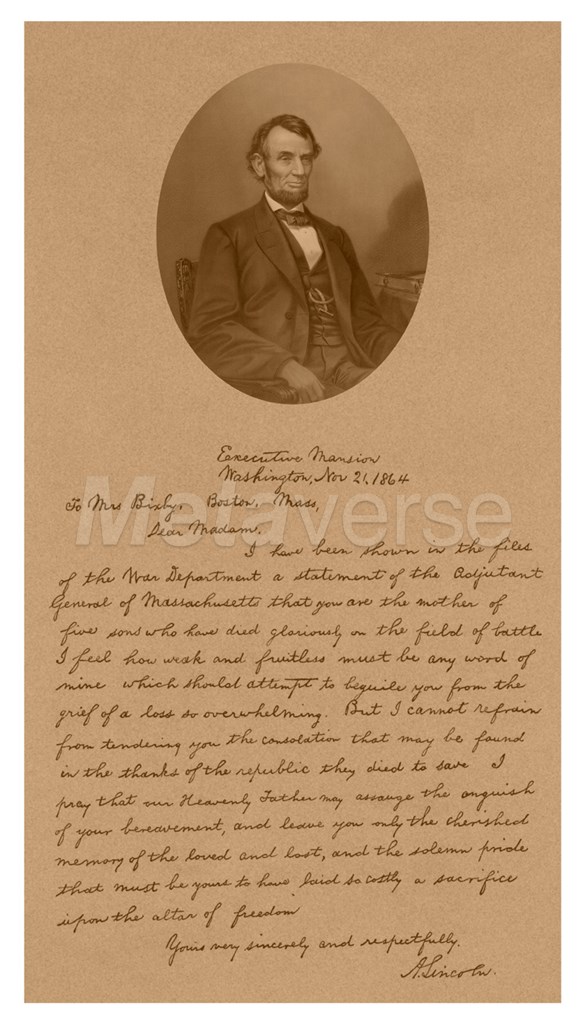 Executive Mansion
Washington, Nov 21, 1864
To Mrs Bixby, Boston, Mass,
Dear Madam,
I have been shown in the files
of the War Department a statement of the Adjutant
General of Massachusetts that you are the mother of
five sons who have died gloriously on the field of battle
I feel how weak and fruitless must be any word of
mine which should attempt to beguile you from the
grief of a loss so overwhelming. But I cannot refrain
from tendering you the consolation that may be found
in the thanks of the republic they died to save I
pray that our Heavenly Father may assauge the anguish
of your bereavement, and leave you only the cherished
memory of the loved and lost, and the solemn pride
that must be yours to have laid so costly a sacrifice
upon the altar of freedom
Yours very sincerely and respectfully,
A. Lincoln.
Metaverse